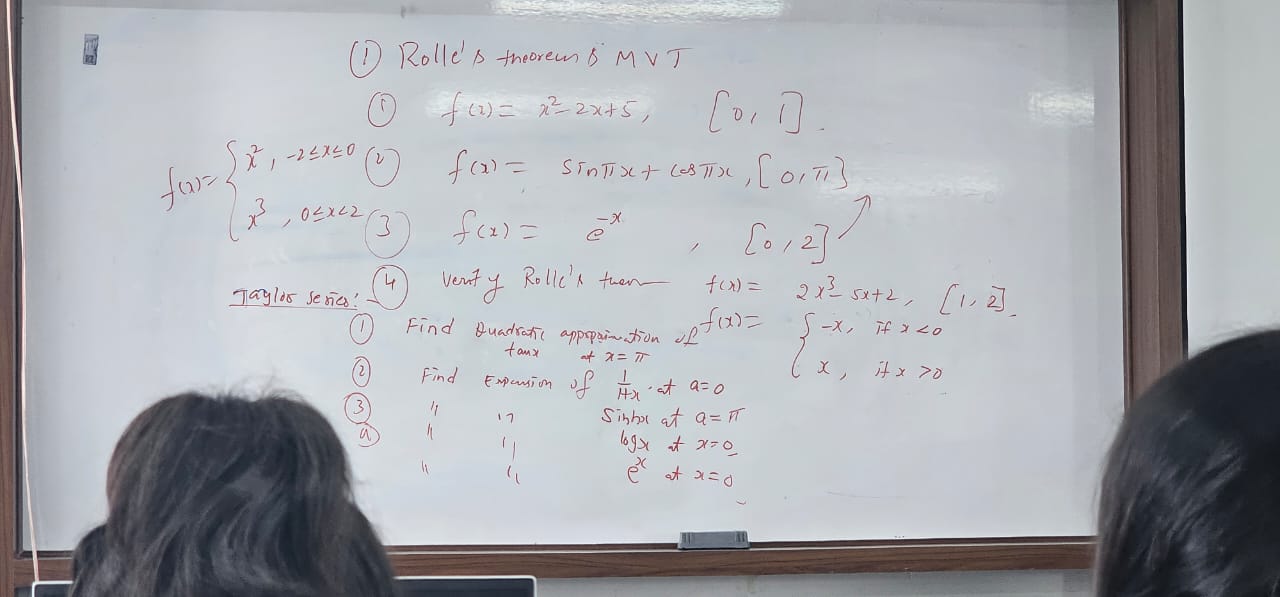 ① Rolle's theorem & MVT
① f(x) = x² - 2x + 5, [0, 1].
f(x) = { x², -2≤x≤0
x³, 0≤x<2
② f(x) = sinπx + cosπx, [0, π]
③ f(x) = e^-x, [0, 2]
④ Verify Rolle's f(x) = 2x³ - 5x + 2, [1, 2].
f(x) = { -x, if x<0
x, if x>0
Taylor series:-
① Find Quadratic of
tanx at x = π
② Find Expansion of 1/1+x at a=0
③ " " at a = π
④ " " logx at x=0
" " e^x at x=0